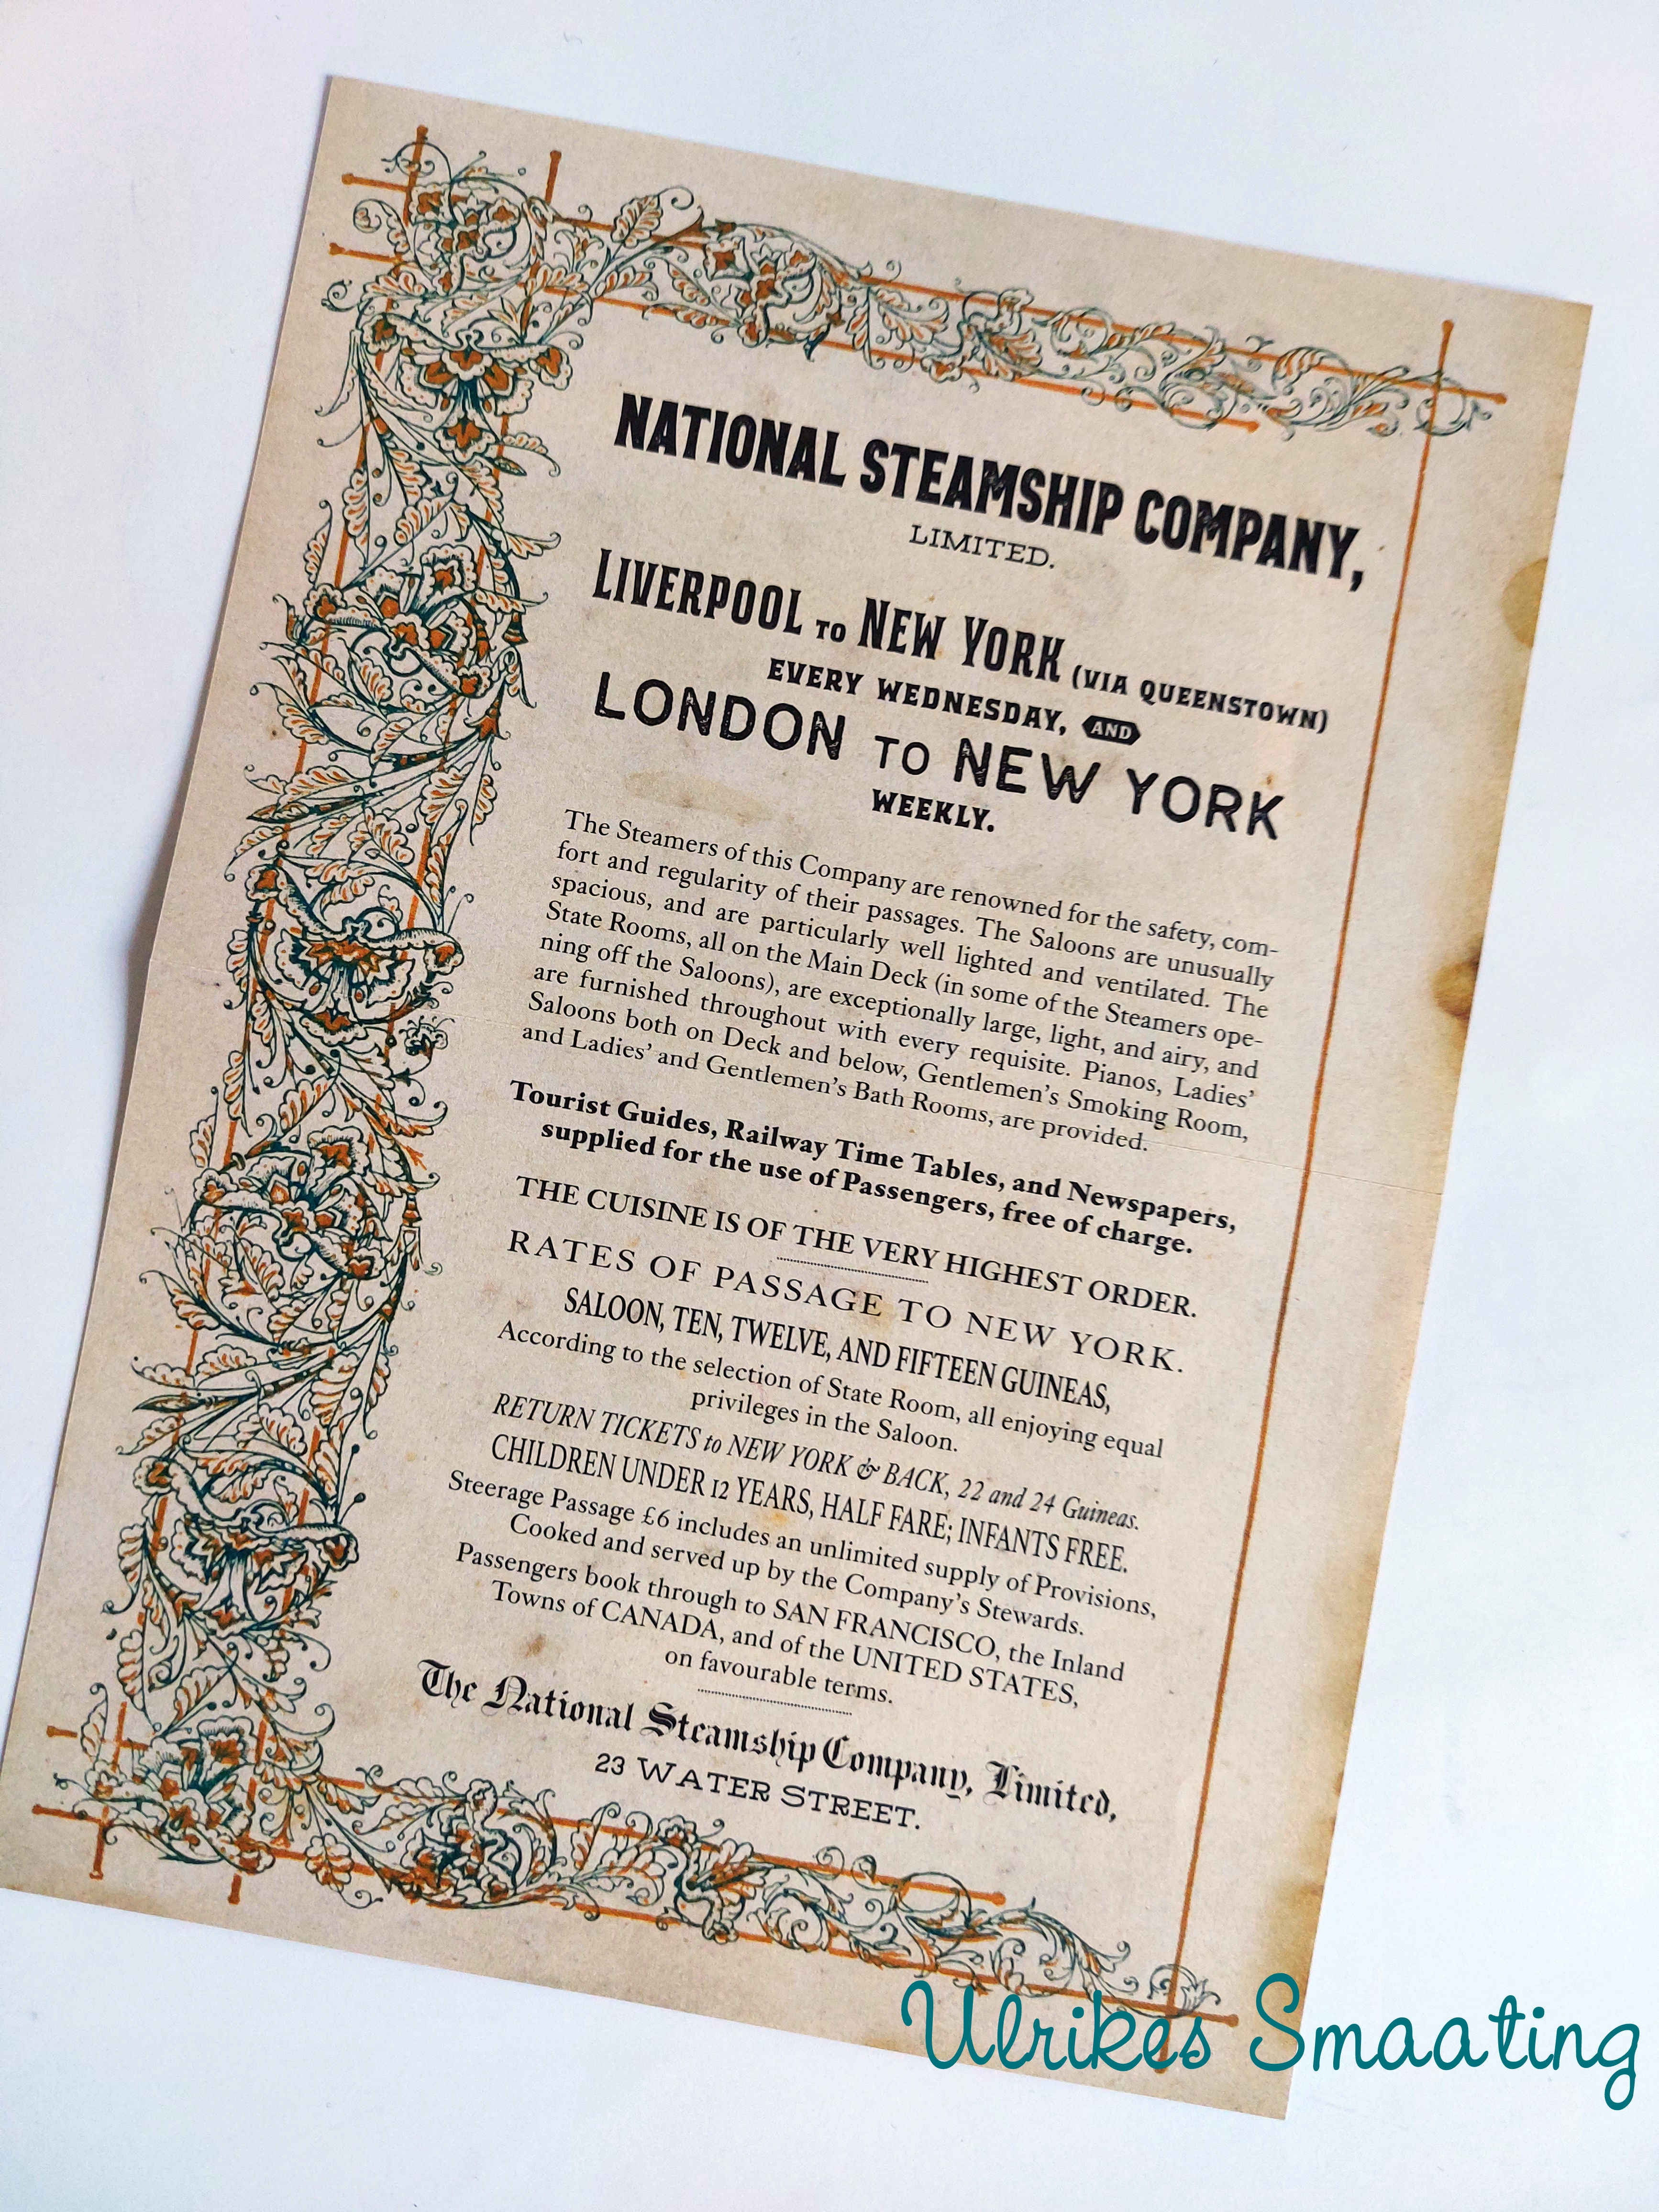 NATIONAL STEAMSHIP COMPANY,
LIMITED.
LIVERPOOL TO NEW YORK (VIA QUEENSTOWN)
EVERY WEDNESDAY, AND
LONDON TO NEW YORK
WEEKLY.
The Steamers of this Company are renowned for the safety, com-
fort and regularity of their passages. The Saloons are unusually
spacious, and are particularly well lighted and ventilated. The
State Rooms, all on the Main Deck (in some of the Steamers ope-
ning off the Saloons), are exceptionally large, light, and airy, and
are furnished throughout with every requisite. Pianos, Ladies'
Saloons both on Deck and below, Gentlemen's Smoking Room,
and Ladies' and Gentlemen's Bath Rooms, are provided.
Tourist Guides, Railway Time Tables, and Newspapers,
supplied for the use of Passengers, free of charge.
THE CUISINE IS OF THE VERY HIGHEST ORDER.
RATES OF PASSAGE TO NEW YORK.
SALOON, TEN, TWELVE, AND FIFTEEN GUINEAS,
According to the selection of State Room, all enjoying equal
privileges in the Saloon.
RETURN TICKETS to NEW YORK & BACK, 22 and 24 Guineas.
CHILDREN UNDER 12 YEARS, HALF FARE; INFANTS FREE.
Steerage Passage £6 includes an unlimited supply of Provisions,
Cooked and served up by the Company's Stewards.
Passengers book through to SAN FRANCISCO, the Inland
Towns of CANADA, and of the UNITED STATES,
on favourable terms.
The National Steamship Company, Limited,
23 WATER STREET.
Ulrikes Smaating